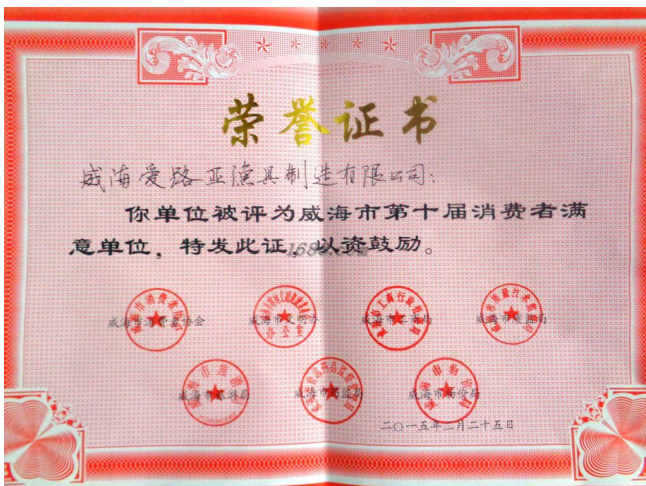 荣誉证书
威海爱路亚渔具制造有限公司：
你单位被评为威海市第十届消费者满
意单位，特发此证，以资鼓励。
威海市消费者协会 威海市文明办 威海市工商局 威海市质监局
威海市旅游局 威海市药监局 威海市物价局
二〇一五年二月二十五日